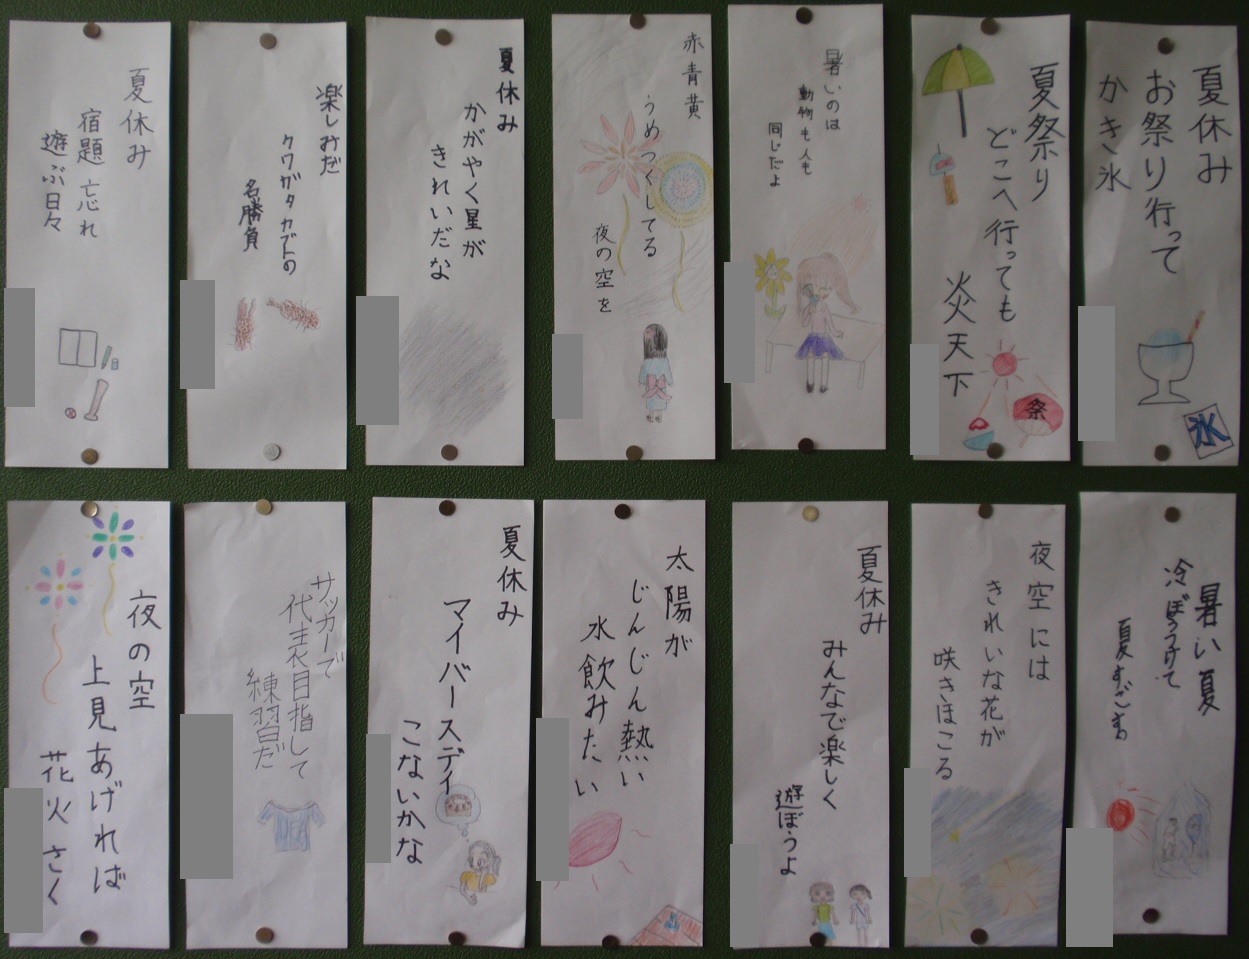 夏休み
お祭り行って
かき氷
氷
夏祭り
どこへ行っても
炎天下
祭
暑いのは
動物も人も
同じだよ
赤青黄
うめつくしてる
夜の空を
夏休み
かがやく星が
きれいだな
楽しみだ
クワガタカブトの
名勝負
夏休み
宿題忘れ
遊ぶ日々
暑い夏
冷ぼうつけて
夜空には
きれいな花が
咲きほこる
夏休み
みんなで楽しく
遊ぼうよ
太陽が
じんじん熱い
水飲みたい
夏休み
マイバースデイ
こないかな
サッカーで
代表目指して
練習だ
夜の空
上見あげれば
花火さく